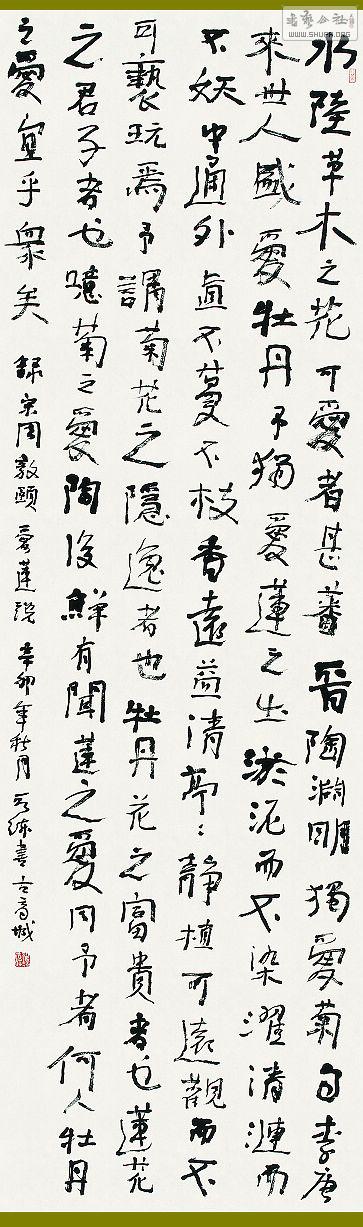 水陸草木之花可愛者甚蕃晉陶淵明獨愛菊自李唐
來世人盛愛牡丹予獨愛蓮之出淤泥而不染濯清漣而
不妖中通外直不蔓不枝香遠益清亭〻靜植可遠觀而不
可褻玩焉予謂菊花之隱逸者也牡丹花之富貴者也蓮花
之君子者也噫菊之愛陶後鮮有聞蓮之愛同予者何人牡丹
之愛宜乎眾矣 錄宋周敦頤愛蓮說 辛卯年秋月 書